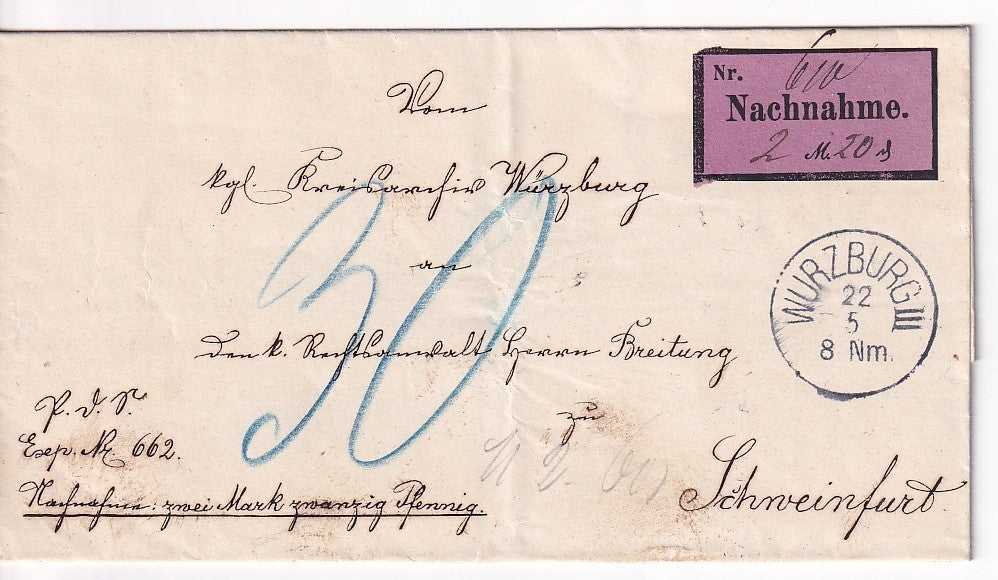 Nr. 600
Nachnahme.
2 M. 20 ₰
Vom
kgl. Kreisarchiv Würzburg
an
den k. Rechtsanwalt Herrn Breitung
zu
Schweinfurt.
30
WURZBURG III
22
5
8 Nm.
P. d. S.
Exp. Nr. 662.
Nachnahme: zwei Mark zwanzig Pfennig.